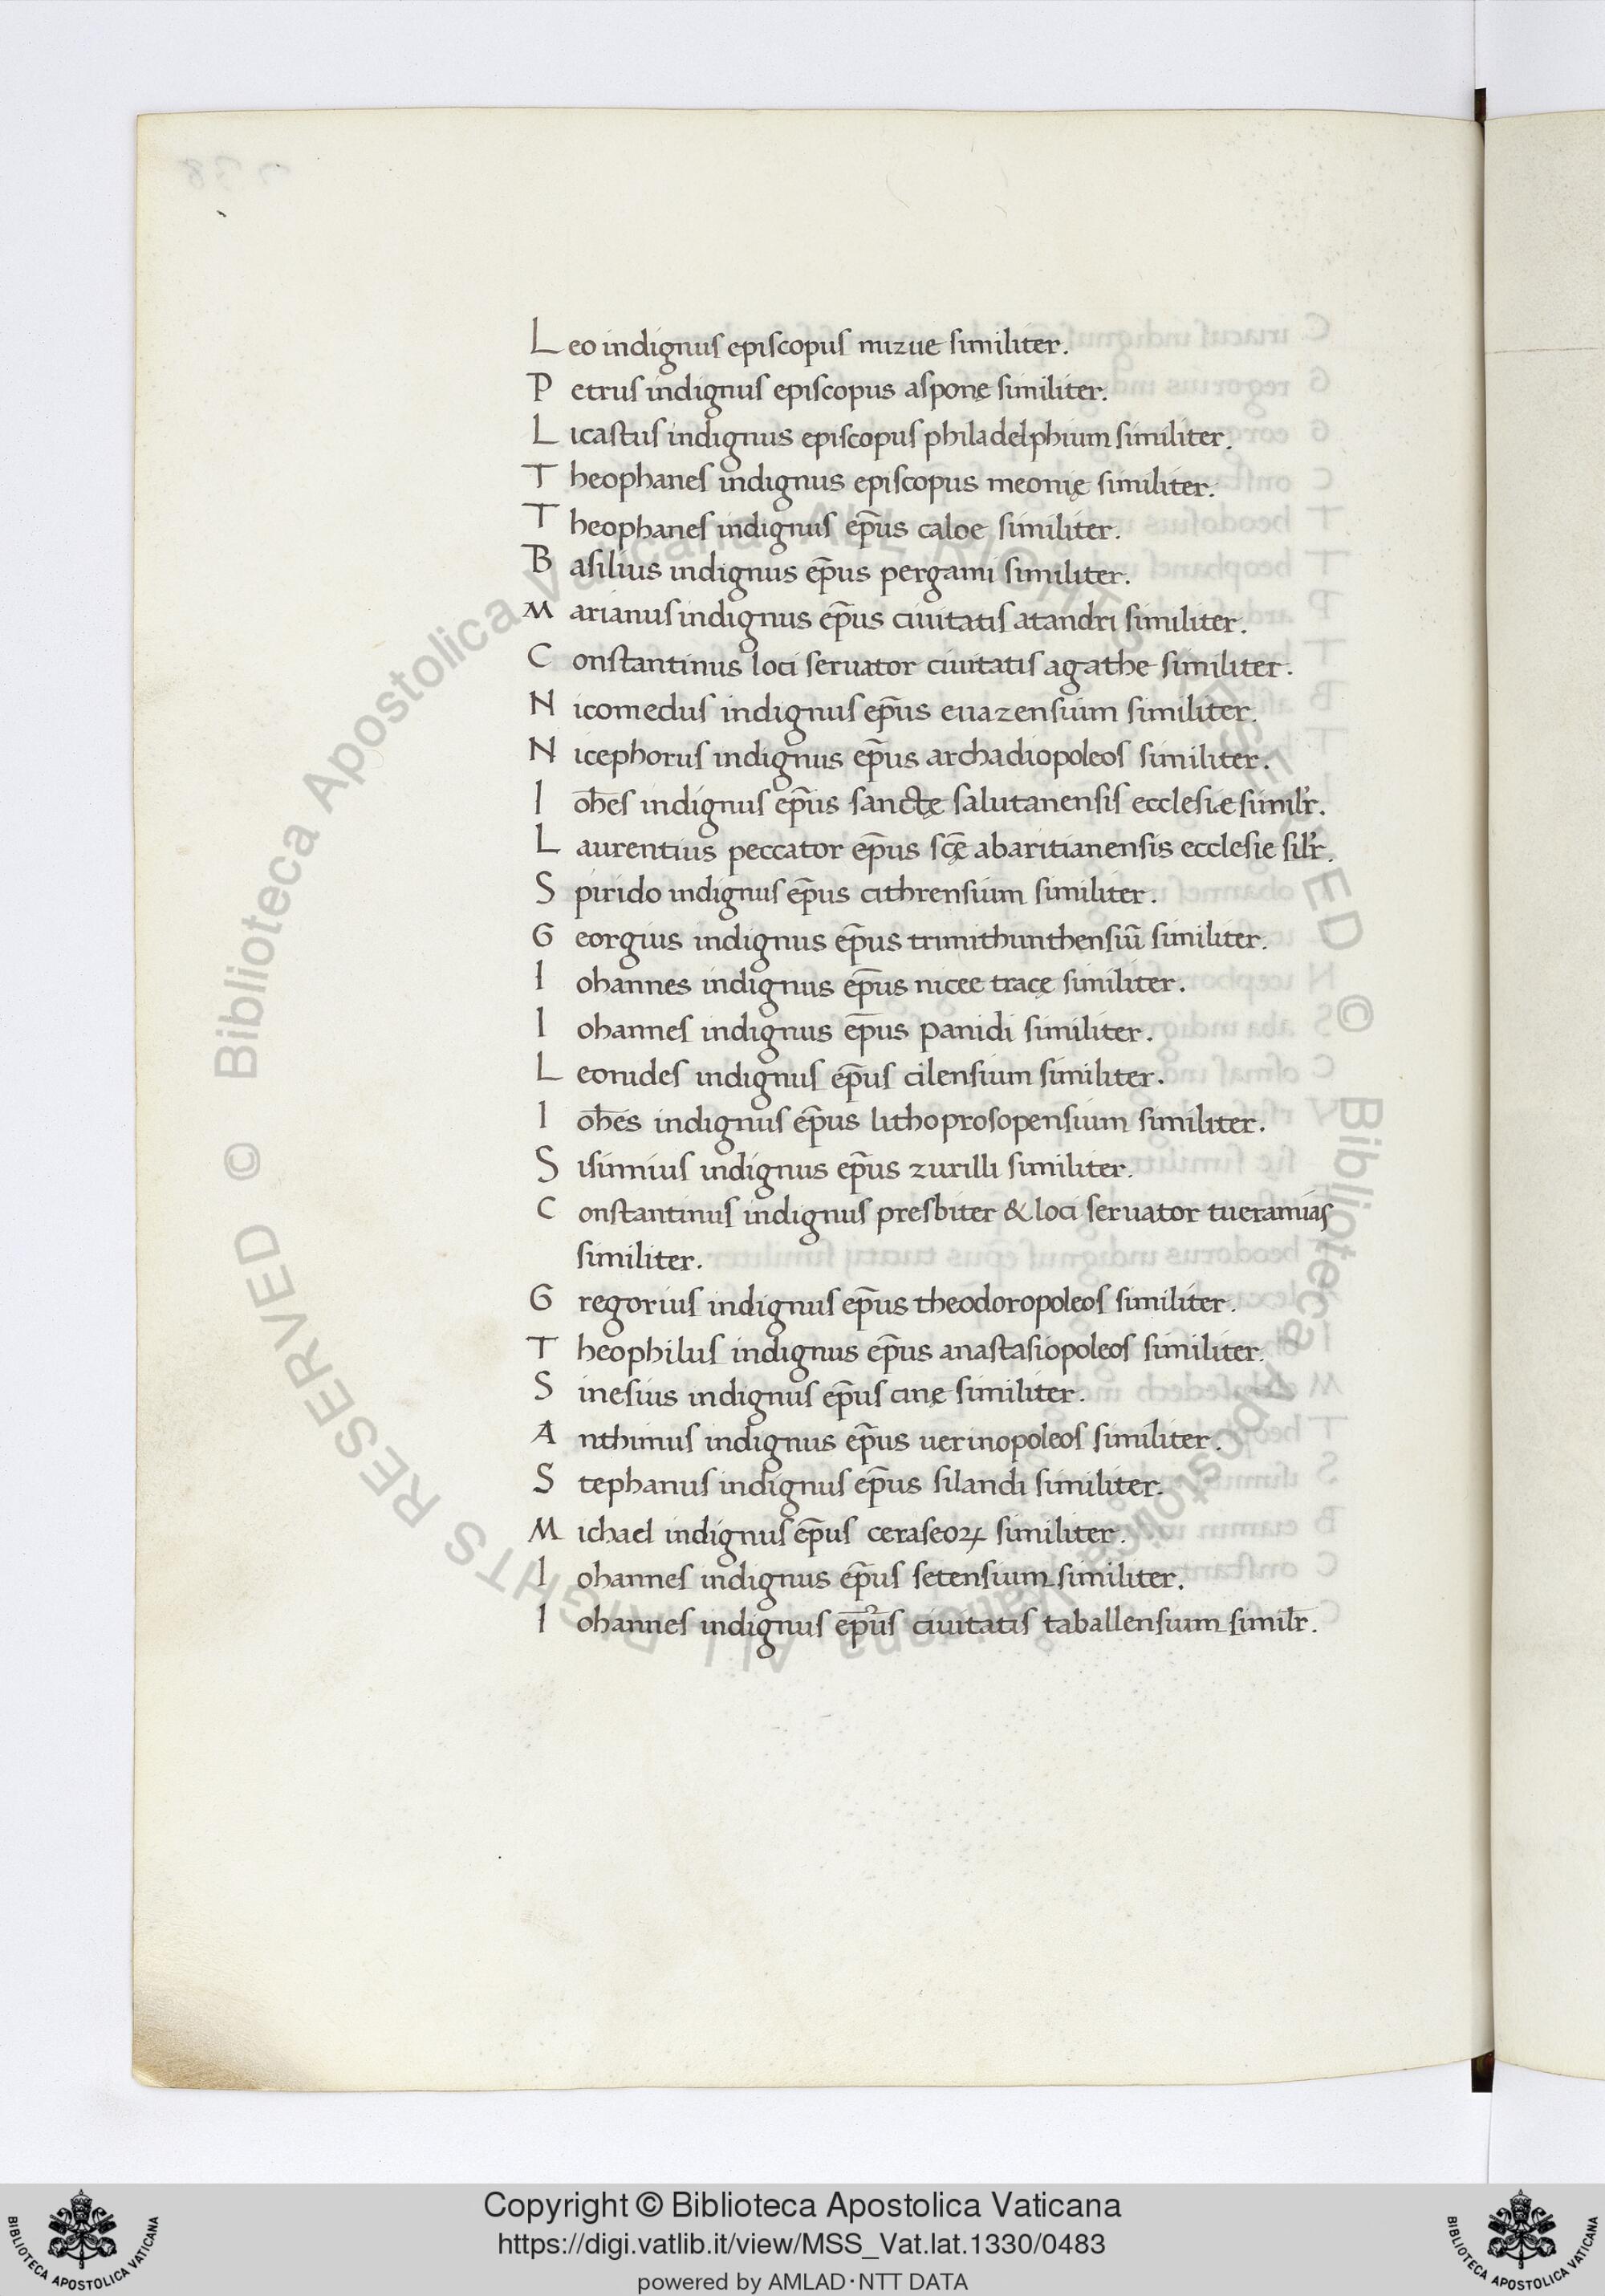 Leo indignus episcopus mizue similiter.
Petrus indignus episcopus asponę similiter.
Licastus indignus episcopus philadelphium similiter.
Theophanes indignus episcopus meonię similiter.
Theophanes indignus ep̄us caloe similiter.
Basilius indignus ep̄us pergami similiter.
Marianus indignus ep̄us ciuitatis atandri similiter.
Constantinus loci seruator ciuitatis agathe similiter.
Nicomedus indignus ep̄us euazensium similiter.
Nicephorus indignus ep̄us archadiopoleos similiter.
Ioh̄es indignus ep̄us sanctę salutanensis ecclesiæ simil̄r.
Laurentius peccator ep̄us sc̄ę abaritianensis ecclesie sil̄r.
Spirido indignus ep̄us cithrensium similiter.
Georgius indignus ep̄us trimithunthensiū similiter.
Iohannes indignus ep̄us nicee tracę similiter.
Iohannes indignus ep̄us panidi similiter.
Leonides indignus ep̄us cilensium similiter.
Ioh̄es indignus ep̄us lithoprosopensium similiter.
Sisinnius indignus ep̄us zurilli similiter.
Constantinus indignus presbiter & loci seruator tueramias
similiter.
Gregorius indignus ep̄us theodoropoleos similiter.
Theophilus indignus ep̄us anastasiopoleos similiter.
Sinesius indignus ep̄us cinę similiter.
Anthimus indignus ep̄us uerinopoleos similiter.
Stephanus indignus ep̄us silandi similiter.
Michael indignus ep̄us ceraseoꝝ similiter.
Iohannes indignus ep̄us setensium similiter.
Iohannes indignus ep̄us ciuitatis taballensium simil̄r.
© Biblioteca Apostolica Vaticana ALL RIGHTS RESERVED © Biblioteca Apostolica Vaticana ALL RIGHTS RESERVED
Copyright © Biblioteca Apostolica Vaticana
https://digi.vatlib.it/view/MSS_Vat.lat.1330/0483
powered by AMLAD·NTT DATA
BIBLIOTECA APOSTOLICA VATICANA
BIBLIOTECA APOSTOLICA VATICANA